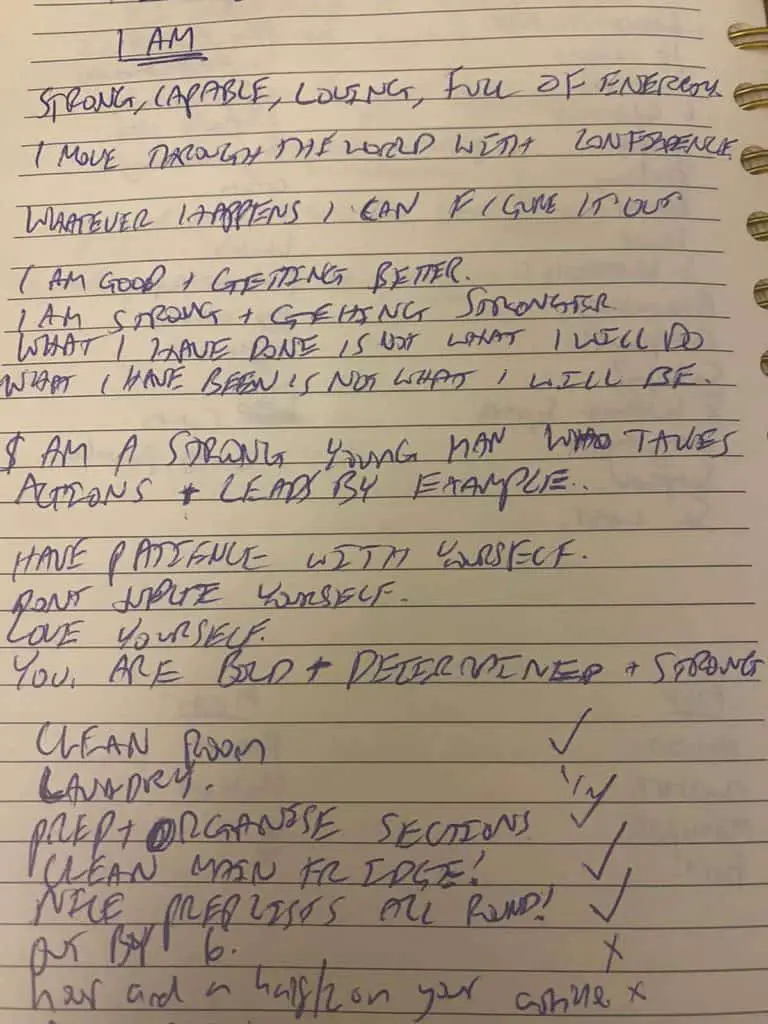 I AM
STRONG, CAPABLE, LOVING, FULL OF ENERGY
I MOVE THROUGH THE WORLD WITH CONFIDENCE
WHATEVER HAPPENS I CAN FIGURE IT OUT
I AM GOOD + GETTING BETTER.
I AM STRONG + GETTING STRONGER
WHAT I HAVE DONE IS NOT WHAT I WILL DO
WHAT I HAVE BEEN IS NOT WHAT I WILL BE.
I AM A STRONG YOUNG MAN WHO TAKES
ACTIONS + LEADS BY EXAMPLE..
HAVE PATIENCE WITH YOURSELF.
DONT YOURSELF.
LOVE YOURSELF.
YOU. ARE BOLD + DETERMINED + STRONG
CLEAN ROOM ✓
LAUNDRY.
PREP + ORGANISE SECTIONS ✓
CLEAN MAIN FRIDGE! ✓
NICE PREP LISTS ALL ROUND! ✓
OUT BY 6. X
hour and a half on your x